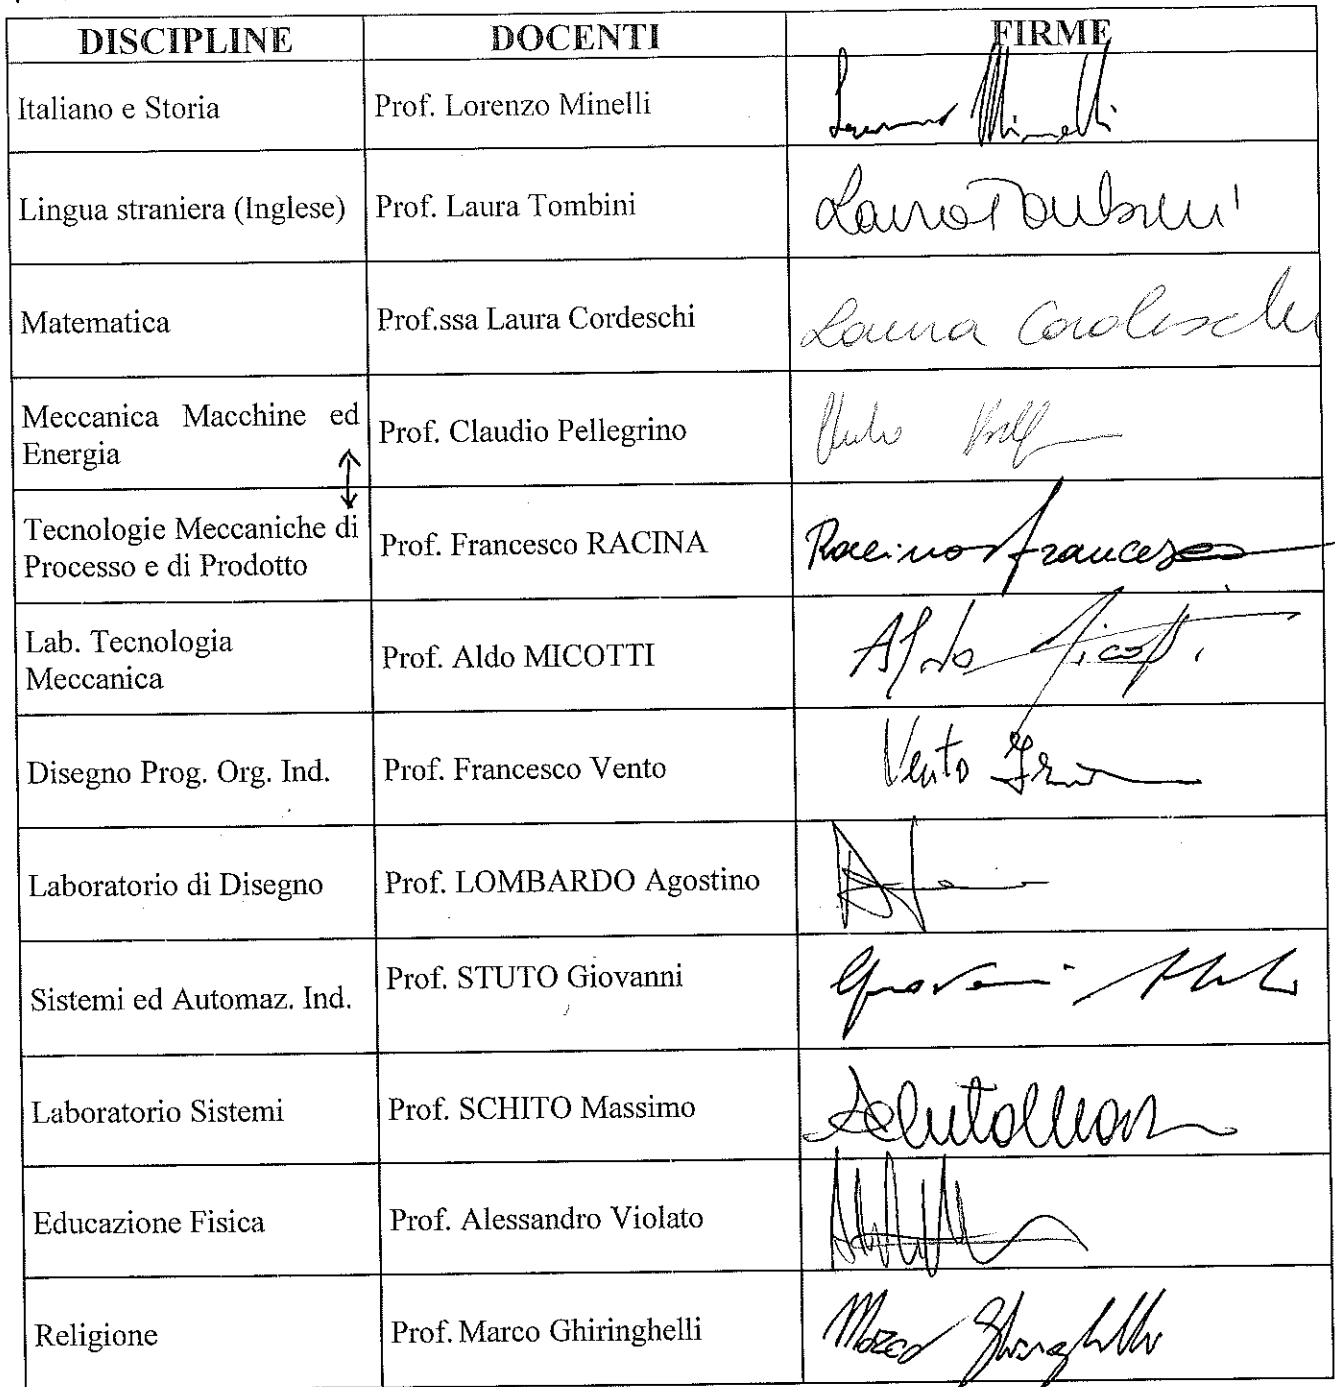 DISCIPLINE DOCENTI FIRME
Italiano e Storia Prof. Lorenzo Minelli Minelli
Lingua straniera (Inglese) Prof. Laura Tombini Laura Tombini
Matematica Prof.ssa Laura Cordeschi Laura Cordeschi
Meccanica Macchine ed
Energia Prof. Claudio Pellegrino
Tecnologie Meccaniche di
Processo e di Prodotto Prof. Francesco RACINA Racina Francesco
Lab. Tecnologia
Meccanica Prof. Aldo MICOTTI Aldo Micotti
Disegno Prog. Org. Ind. Prof. Francesco Vento Vento
Laboratorio di Disegno Prof. LOMBARDO Agostino
Sistemi ed Automaz. Ind. Prof. STUTO Giovanni Giovanni Stuto
Laboratorio Sistemi Prof. SCHITO Massimo
Educazione Fisica Prof. Alessandro Violato
Religione Prof. Marco Ghiringhelli Marco Ghiringhelli